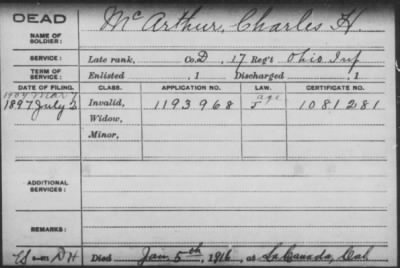 DEAD
NAME OF SOLDIER: McArthur, Charles H.
SERVICE: Late rank, Co. D, 17 Reg't Ohio Inf
TERM OF SERVICE: Enlisted , 1 Discharged , 1
DATE OF FILING. CLASS. APPLICATION NO. LAW. CERTIFICATE NO.
1904 Mar 7 age
1897 July 2 Invalid, 1193968 1081281
Widow,
Minor,
ADDITIONAL SERVICES:
REMARKS:
Died Jan 5th, 1916, at La Canada, Cal